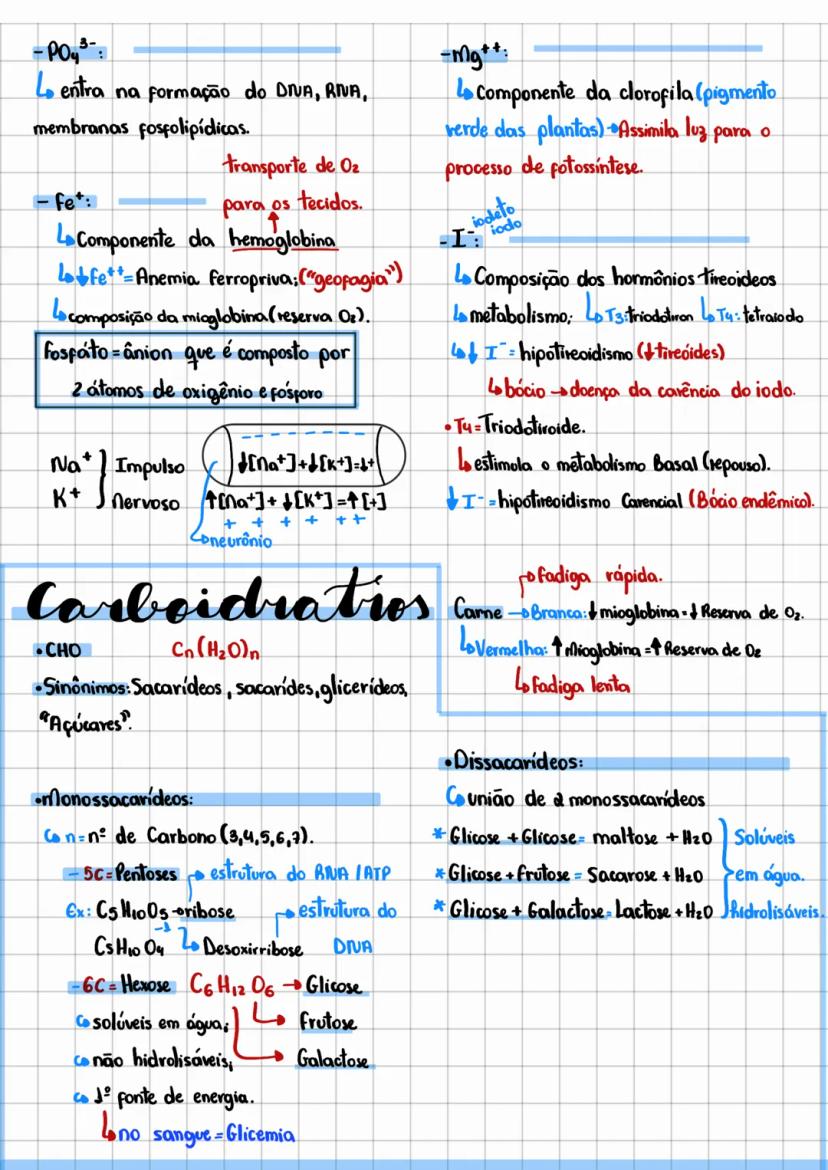 - PO₄³⁻:
↳ entra na formação do DNA, RNA,
membranas fosfolipídicas.
transporte de O₂
para os tecidos.
- Fe⁺:
↳ Componente da hemoglobina
↳↓Fe⁺⁺ = Anemia ferropriva; ("geofagia")
↳ composição da mioglobina (reserva O₂).
Fosfáto = ânion que é composto por
2 átomos de oxigênio e fósforo
Na⁺ } Impulso
K⁺ } Nervoso
↓[Na⁺]+↓[K⁺]=↓+
↑[Na⁺]+ ↓[K⁺] =↑[+]
+ + + + + +
↳neurônio
-Mg⁺⁺:
↳Componente da clorofila (pigmento
verde das plantas)→Assimila luz para o
processo de fotossíntese.
iodeto
iodo
- I⁻:
↳ Composição dos hormônios tireoideos
↳ metabolismo; ↳ T3:triodotiron ↳ T4: tetraiodo
↳↓ I⁻ = hipotireoidismo (↓tireóides)
↳ bócio → doença da carência do iodo.
• T4 = Triodotiroide.
↳ estimula o metabolismo Basal (repouso).
↓ I⁻ = hipotireoidismo Carencial (Bócio endêmico).
Carboidratros
• CHO Cn(H₂O)n
• Sinônimos: Sacarídeos, sacarídes, glicerídeos,
"Açúcares".
fadiga rápida.
Carne → Branca: ↓ mioglobina = ↓ Reserva de O₂.
↳ Vermelha: ↑ Mioglobina = ↑ Reserva de O₂
↳ Fadiga lenta
• Monossacarídeos:
↳ n = nº de Carbono (3,4,5,6,7).
- 5C = Pentoses → estrutura do RNA / ATP
Ex: C5H10O5 → oribose → estrutura do
C5H10O4 ↳ Desoxirribose DNA
- 6C = Hexose C₆H₁₂O₆ → Glicose
↳ solúveis em água; → Frutose
↳ não hidrolisáveis; → Galactose
↳ 1º fonte de energia.
↳ no sangue = Glicemia
• Dissacarídeos:
↳ união de 2 monossacarídeos
* Glicose + Glicose = maltose + H₂O } Solúveis
* Glicose + frutose = Sacarose + H₂O } em água.
* Glicose + Galactose = Lactose + H₂O } hidrolisáveis.